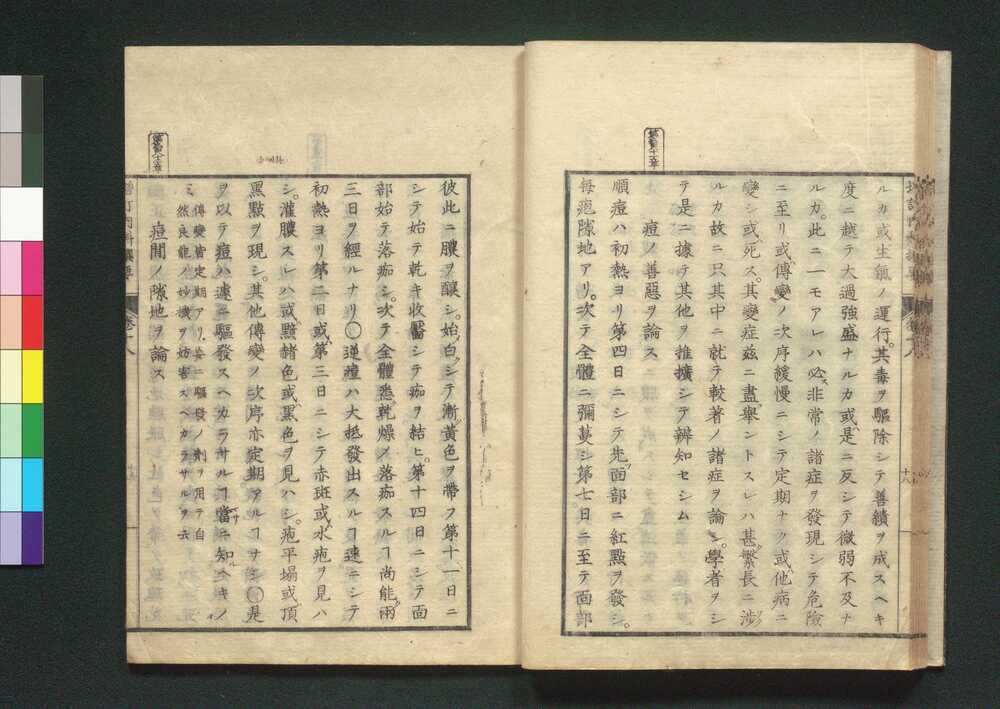 ルカ或ハ生氣ノ運行。其毒ヲ驅除シテ善績ヲ成スヘキ
度ニ越テ大過強盛ナルカ或ハ是ニ反シテ微弱不及ナ
ルカ。此ニ一モアレハ必ス非常ノ諸症ヲ發現シテ危險
ニ至リ或ハ傳變ノ次序緩慢ニシテ定期ナク或ハ他病ニ
變シ或ハ死ス。其變症茲ニ盡ク舉ントスレハ甚タ繁長ニ渉
ルカ故ニ只其中ニ就テ較著ノ諸症ヲ論シ。學者ヲシ
テ是ニ據テ其他ヲ推擴シテ辨知セシム
痘ノ善惡ヲ論ス
順痘ハ初熱ヨリ第四日ニシテ先ツ面部ニ紅點ヲ發シ。
毎疱隙地アリ。次テ全體ニ彌蔓シ第七日ニ至テ面部
十八
彼此ニ膿ヲ釀シ。始メ白フシテ漸ク黃色ヲ帶フ第十一日ニ
シテ始テ乾キ收靨シテ痂ヲ結ヒ。第十四日ニシテ面
部始テ落痂シ。次テ全體悉ク乾燥ノ落痂スルヿ尚能ク兩
三日ヲ經ルナリ〇逆痘ハ大抵發出スルヿ速ニシテ
初熱ヨリ第二日或ハ第三日ニシテ赤斑或ハ水疱ヲ見ハ
シ。灌膿スレハ或ハ黯赭色或ハ黑色ヲ見ハシ。疱平塌或ハ頂
黑點ヲ現シ。其他傳變ノ次序亦定期アルヿナシ〇是
ヲ以テ痘ハ遽ニ驅發スヘカラサルヿ當サニ知ルヘキノ
ミ 傳變皆定期アリ。妄ニ驅發ノ劑ヲ用テ自
然良能ノ妙機ヲ妨害スヘカラサルヲ云
痘間ノ隙地ヲ論ス